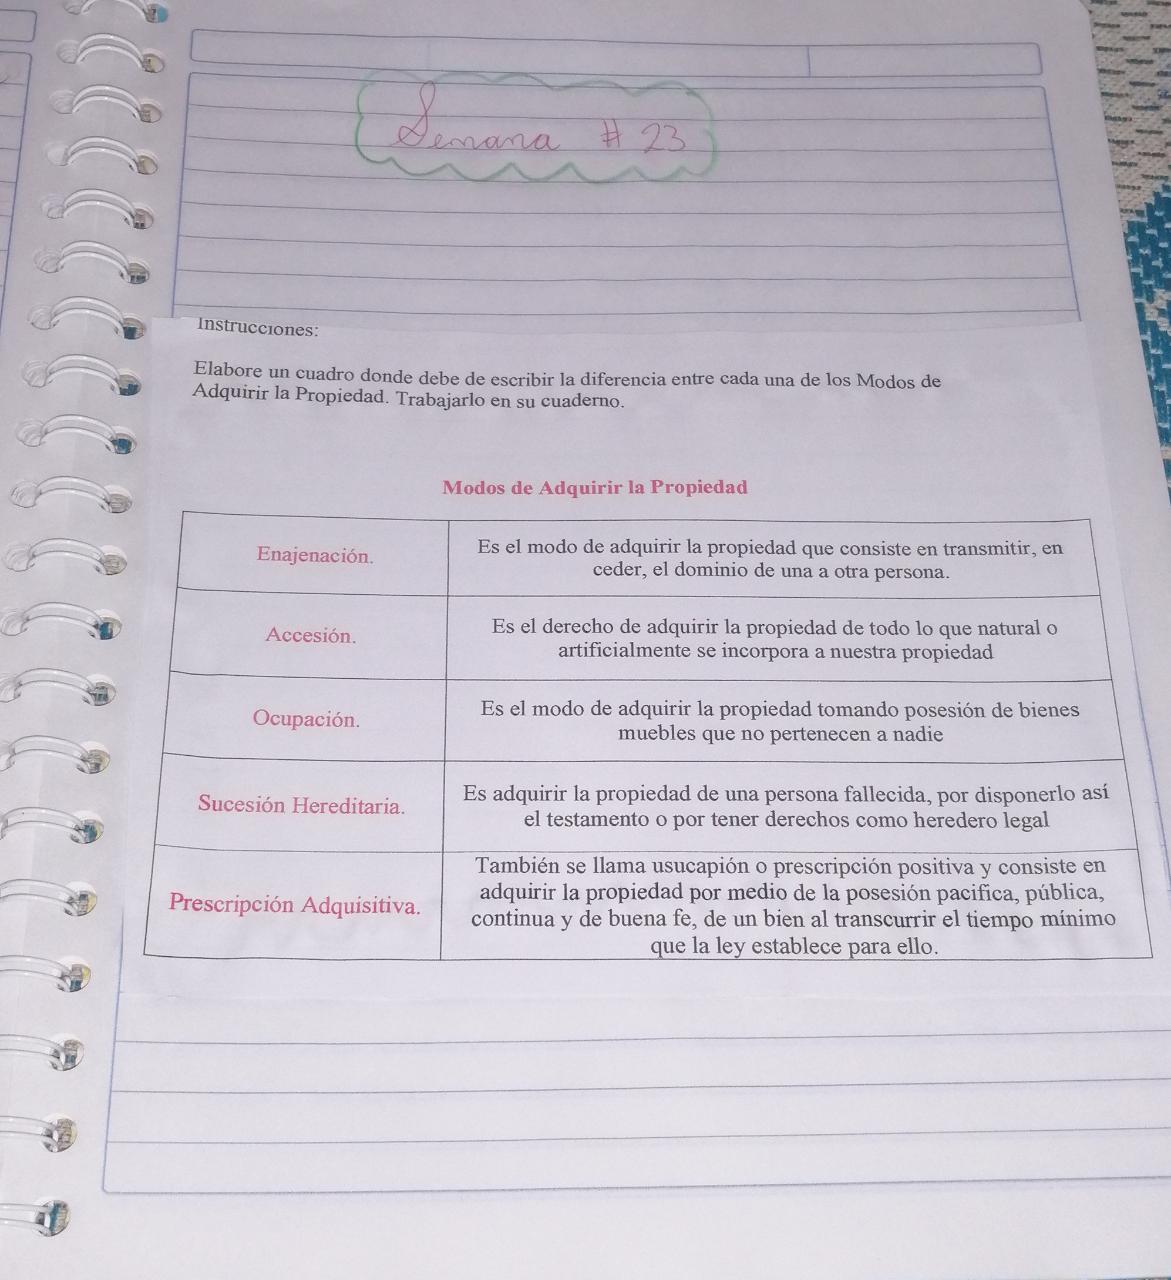 Semana # 23
Instrucciones:
Elabore un cuadro donde debe de escribir la diferencia entre cada una de los Modos de
Adquirir la Propiedad. Trabajarlo en su cuaderno.
Modos de Adquirir la Propiedad
Enajenación.
Es el modo de adquirir la propiedad que consiste en transmitir, en
ceder, el dominio de una a otra persona.
Accesión.
Es el derecho de adquirir la propiedad de todo lo que natural o
artificialmente se incorpora a nuestra propiedad
Ocupación.
Es el modo de adquirir la propiedad tomando posesión de bienes
muebles que no pertenecen a nadie
Sucesión Hereditaria.
Es adquirir la propiedad de una persona fallecida, por disponerlo así
el testamento o por tener derechos como heredero legal
Prescripción Adquisitiva.
También se llama usucapión o prescripción positiva y consiste en
adquirir la propiedad por medio de la posesión pacifica, pública,
continua y de buena fe, de un bien al transcurrir el tiempo mínimo
que la ley establece para ello.